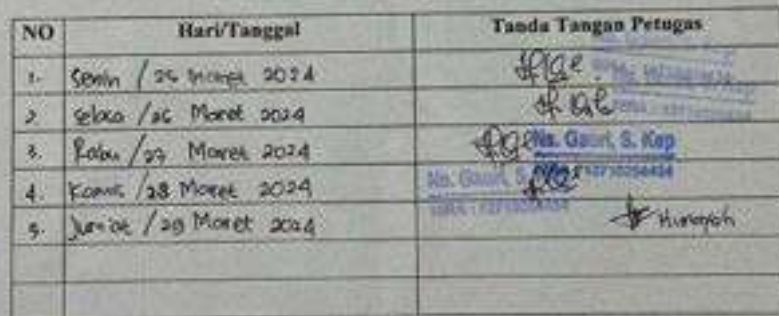 NO Hari/Tanggal Tanda Tangan Petugas
1. Senin / 25 Maret 2024
2. Selasa / 26 Maret 2024
3. Rabu / 27 Maret 2024 Ns. Gauri, S. Kep
4. Kamis / 28 Maret 2024 Ns. Gauri, S. Kep
5. Jum'at / 29 Maret 2024